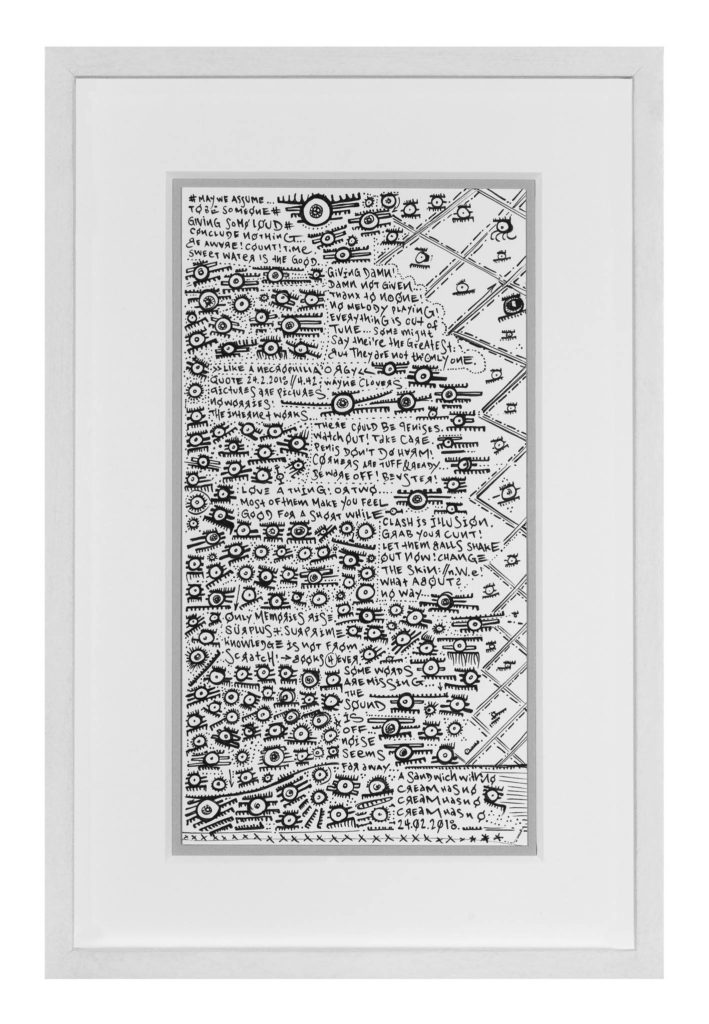 #MAY WE ASSUME...
TO BE SOMEONE#
GIVING SOMO LOUD#
CONCLUDE NOTHING...
BE AWARE! COUNT! TIME
SWEET WATER IS THE GOOD.
GIVING DAMN!
DAMN NOT GIVEN
THANX TO NOONE!
NO MELODY PLAYING!
EVERYTHING IS OUT OF
TUNE... SOME MIGHT
SAY THEI'RE THE GREATEST.
BUT THEY ARE NOT THE ONLY ONE.
>>LIKE A NECROPHILIA ORGY<<
QUOTE 24.2.2018//4.42; WAYNE CLOVERS
PICTURES ARE PICTURES
NO WORRIES!
THE INTERNET WORKS...
THERE COULD BE PENISES.
WATCH OUT! TAKE CARE.
PENIS DON'T DO HARM!
CORNERS ARE TUFF & READY.
BEWARE OFF! BEUSTER!
LOVE A THING! OR TWO...
MOST OF THEM MAKE YOU FEEL
GOOD FOR A SHORT WHILE
CLASH IS ILLUSION.
GRAB YOUR CUNT!
LET THEM BALLS SHAKE.
OUT NOW! CHANGE
THE SKIN://n.W.e!
WHAT ABOUT?
NO WAY...
ONLY MEMORIES RISE.
SURPLUS + SURPRIME
KNOWLEDGE IS NOT FROM
SCRATCH! → BOOKS 4 EVER
SOME WORDS
ARE MISSING...
THE
SOUND
IS
OFF
NOISE
SEEMS
FAR AWAY.
A SANDWICH WITH NO
CREAM HAS NO
CREAM HAS NO
CREAM HAS NO
24.02.2018.